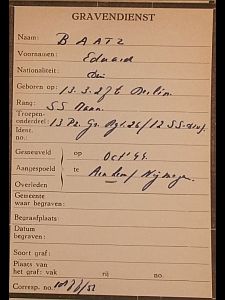 GRAVENDIENST
Naam: BAATZ
Voornamen: Eduard
Nationaliteit:
Geboren op: 15.3.27 te Berlin
Rang: SS Mann.
Troepen-
onderdeel: 13 Pz. Gr. Rgt. 26/12 SS-
Ident.
no.:
Gesneuveld op Oct '44.
Aangespoeld te Arnhem/Nijmegen
Overleden
Gemeente
waar begraven:
Begraafplaats:
Datum
begraven:
Soort graf:
Plaats van
het graf: vak rij no.
Corresp. no.: